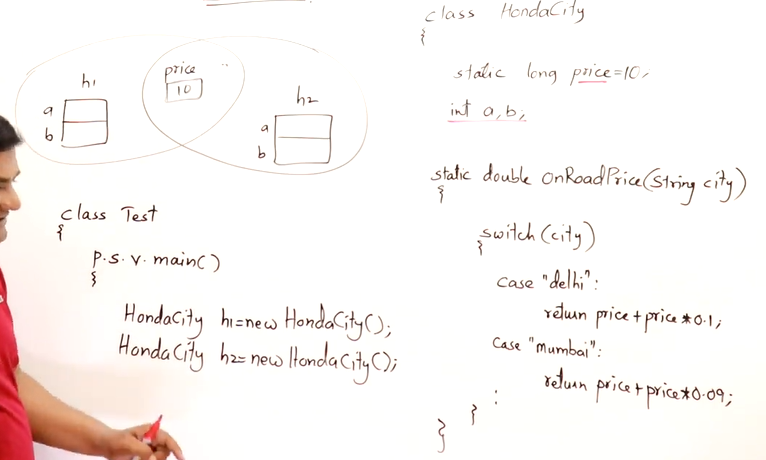 h1
price
10
a
b
h2
a
b
class Test
{
p.s.v.main()
{
HondaCity h1=new HondaCity();
HondaCity h2=new HondaCity();
class HondaCity
{
static long price=10;
int a,b;
static double onRoadPrice(String city)
{
switch(city)
{
case "delhi":
return price+price*0.1;
case "mumbai":
return price+price*0.09;
:
}
}